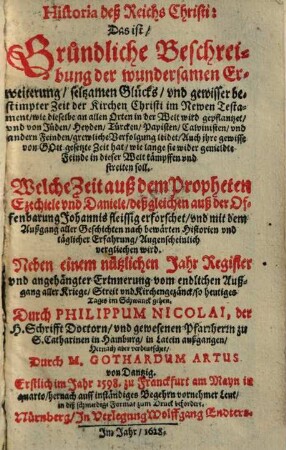 Historia deß Reichs Christi:
Das ist /
Gründliche Beschrei-
bung der wundersamen Er-
weiterung / seltzamen Glücks / vnd gewisser be-
stimpter Zeit der Kirchen Christi im Newen Testa-
ment / wie dieselbe an allen Orten in der Welt wird gepflantzet /
vnd von Jüden / Heyden / Türcken / Papisten / Calvinisten / vnd
andern Feinden / grewliche Verfolgung leidet / Auch jhre gewisse
von GOtt gesetzte Zeit hat / wie lange sie wider gemeldte
Feinde in dieser Welt kämpffen vnd
streiten soll.
Welche Zeit auß dem Propheten
Ezechiele vnd Daniele / deßgleichen auß der Of-
fenbarung Johannis fleissig erforschet / vnd mit dem
Außgang aller Geschichten nach bewärten Historien vnd
täglicher Erfahrung / Augenscheinlich
verglichen wird.
Neben einem nützlichen Jahr Register
vnd angehängter Erinnerung vom endlichen Auß-
gang aller Kriege / Streit vnd Kirchengezänck / so heutiges
Tages im Schwanck gehen.
Durch PHILIPPUM NICOLAI, der
H. Schrifft Doctorn / vnd gewesenen Pfarrherrn zu
S. Catharinen in Hamburg / in Latein außgangen /
Hernach aber verdeutschet /
Durch M. GOTHARDUM ARTUS
von Dantzig.
Erstlich im Jahr 1598. zu Franckfurt am Mayn in
quarto / hernach auff inständiges Begehrn vornehmer Leut /
in diß schmeidige Format zum Druck befördert.
Nürnberg / In Verlegung Wolffgang Endters.
Im Jahr / 1628.